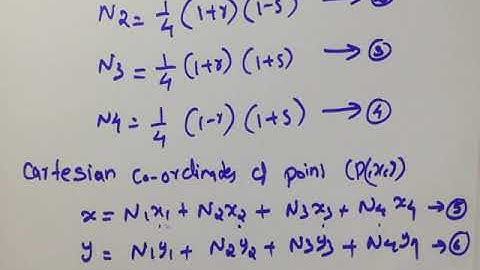 N2 = 1/4 (1+r) (1-s) →
N3 = 1/4 (1+r) (1+s) → ③
N4 = 1/4 (1-r) (1+s) → ④
Cartesian co-ordinates of point
x = N1x1 + N2x2 + N3x3 + N4 x4 → ⑤
y = N1y1 + N2y2 + N3y3 + N4y4 → ⑥